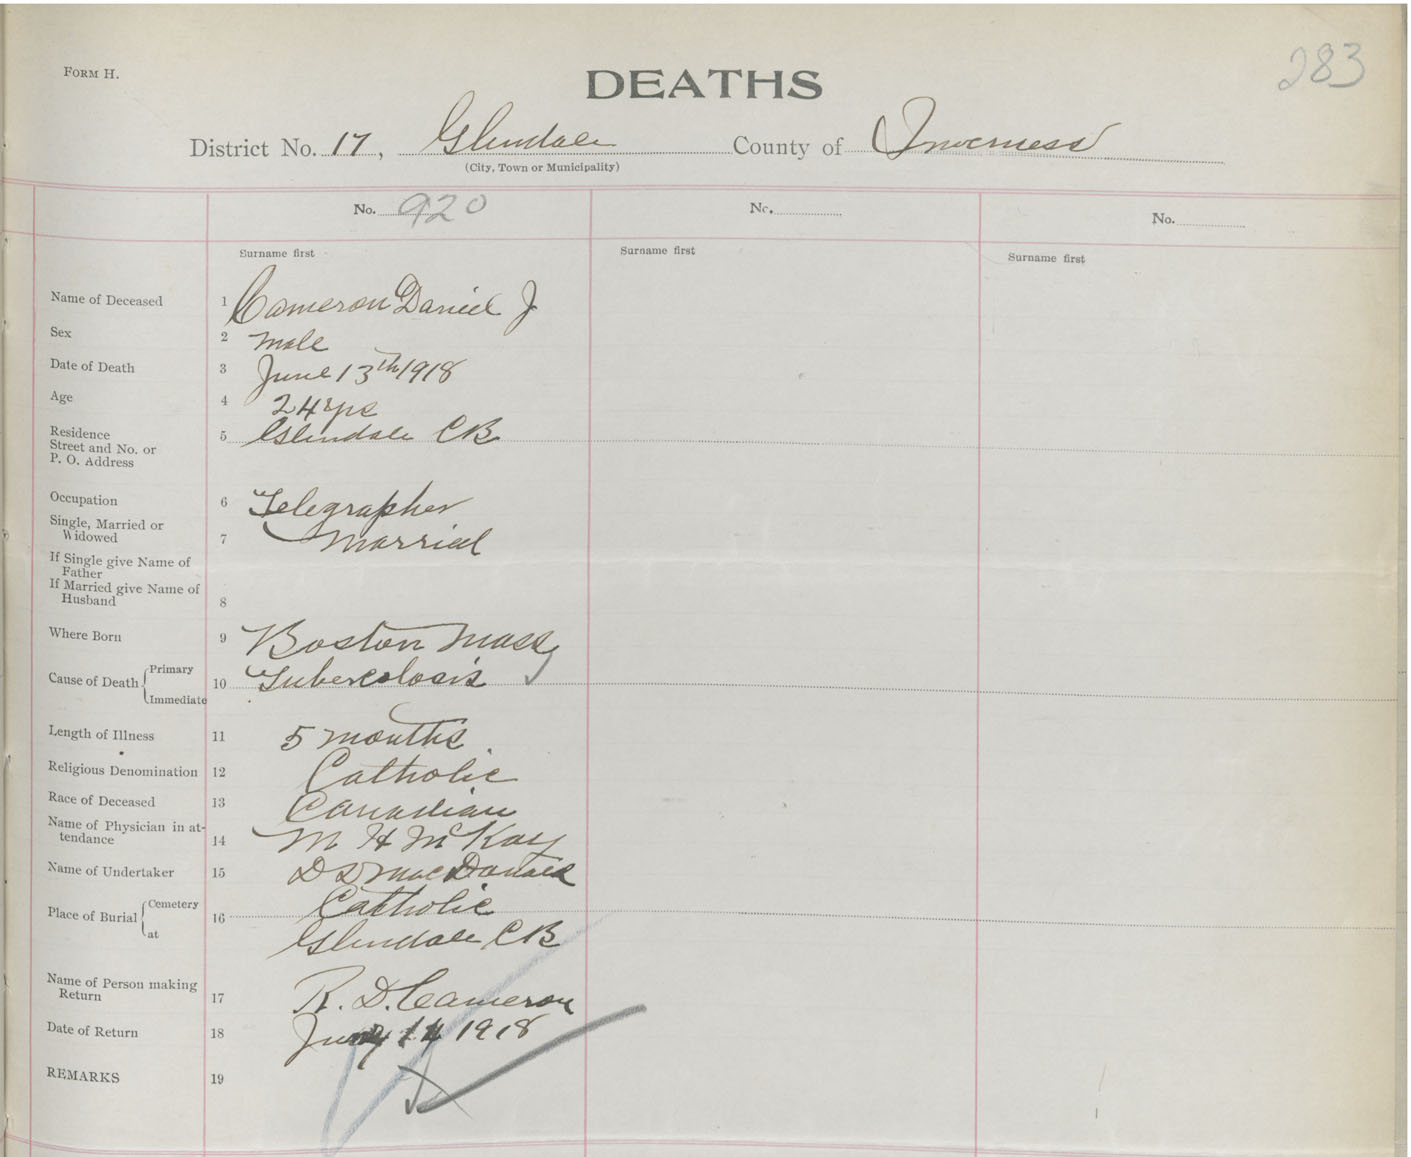 FORM H.
283
DEATHS
District No. 17, Glendale County of Inverness
(City, Town or Municipality)
No. 920 No. No.
Surname first Surname first Surname first
Name of Deceased 1 Cameron Daniel J
Sex 2 Male
Date of Death 3 June 13th 1918
Age 4 24 yrs
Residence
Street and No. or
P. O. Address
5 Glendale CB
Occupation 6 Telegrapher
Single, Married or
Widowed
7 Married
If Single give Name of
Father
If Married give Name of
Husband
8
Where Born 9 Boston Mass
Cause of Death Primary
Immediate
10 Tubercolosis
Length of Illness 11 5 months
Religious Denomination 12 Catholic
Race of Deceased 13 Canadian
Name of Physician in at-
tendance
14 M H McKay
Name of Undertaker 15 D S MacDonald
Place of Burial Cemetery
at
16 Catholic
Glendale CB
Name of Person making
Return
17 R. D. Cameron
Date of Return 18 1918
REMARKS 19